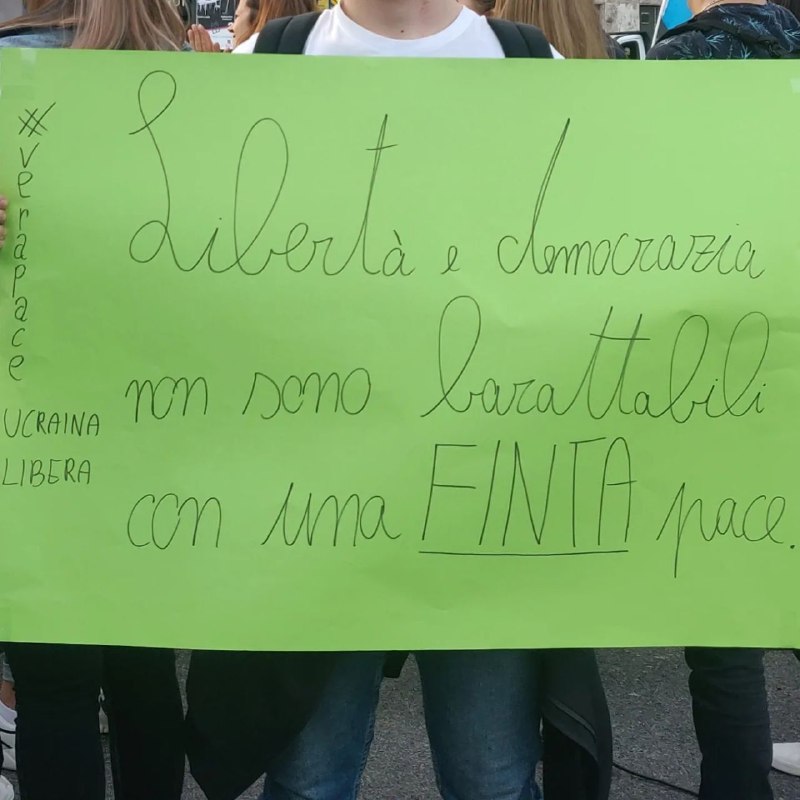 #verapace
UCRAINA
LIBERA
Libertà e democrazia
non sono barattabili
con una FINTA pace.